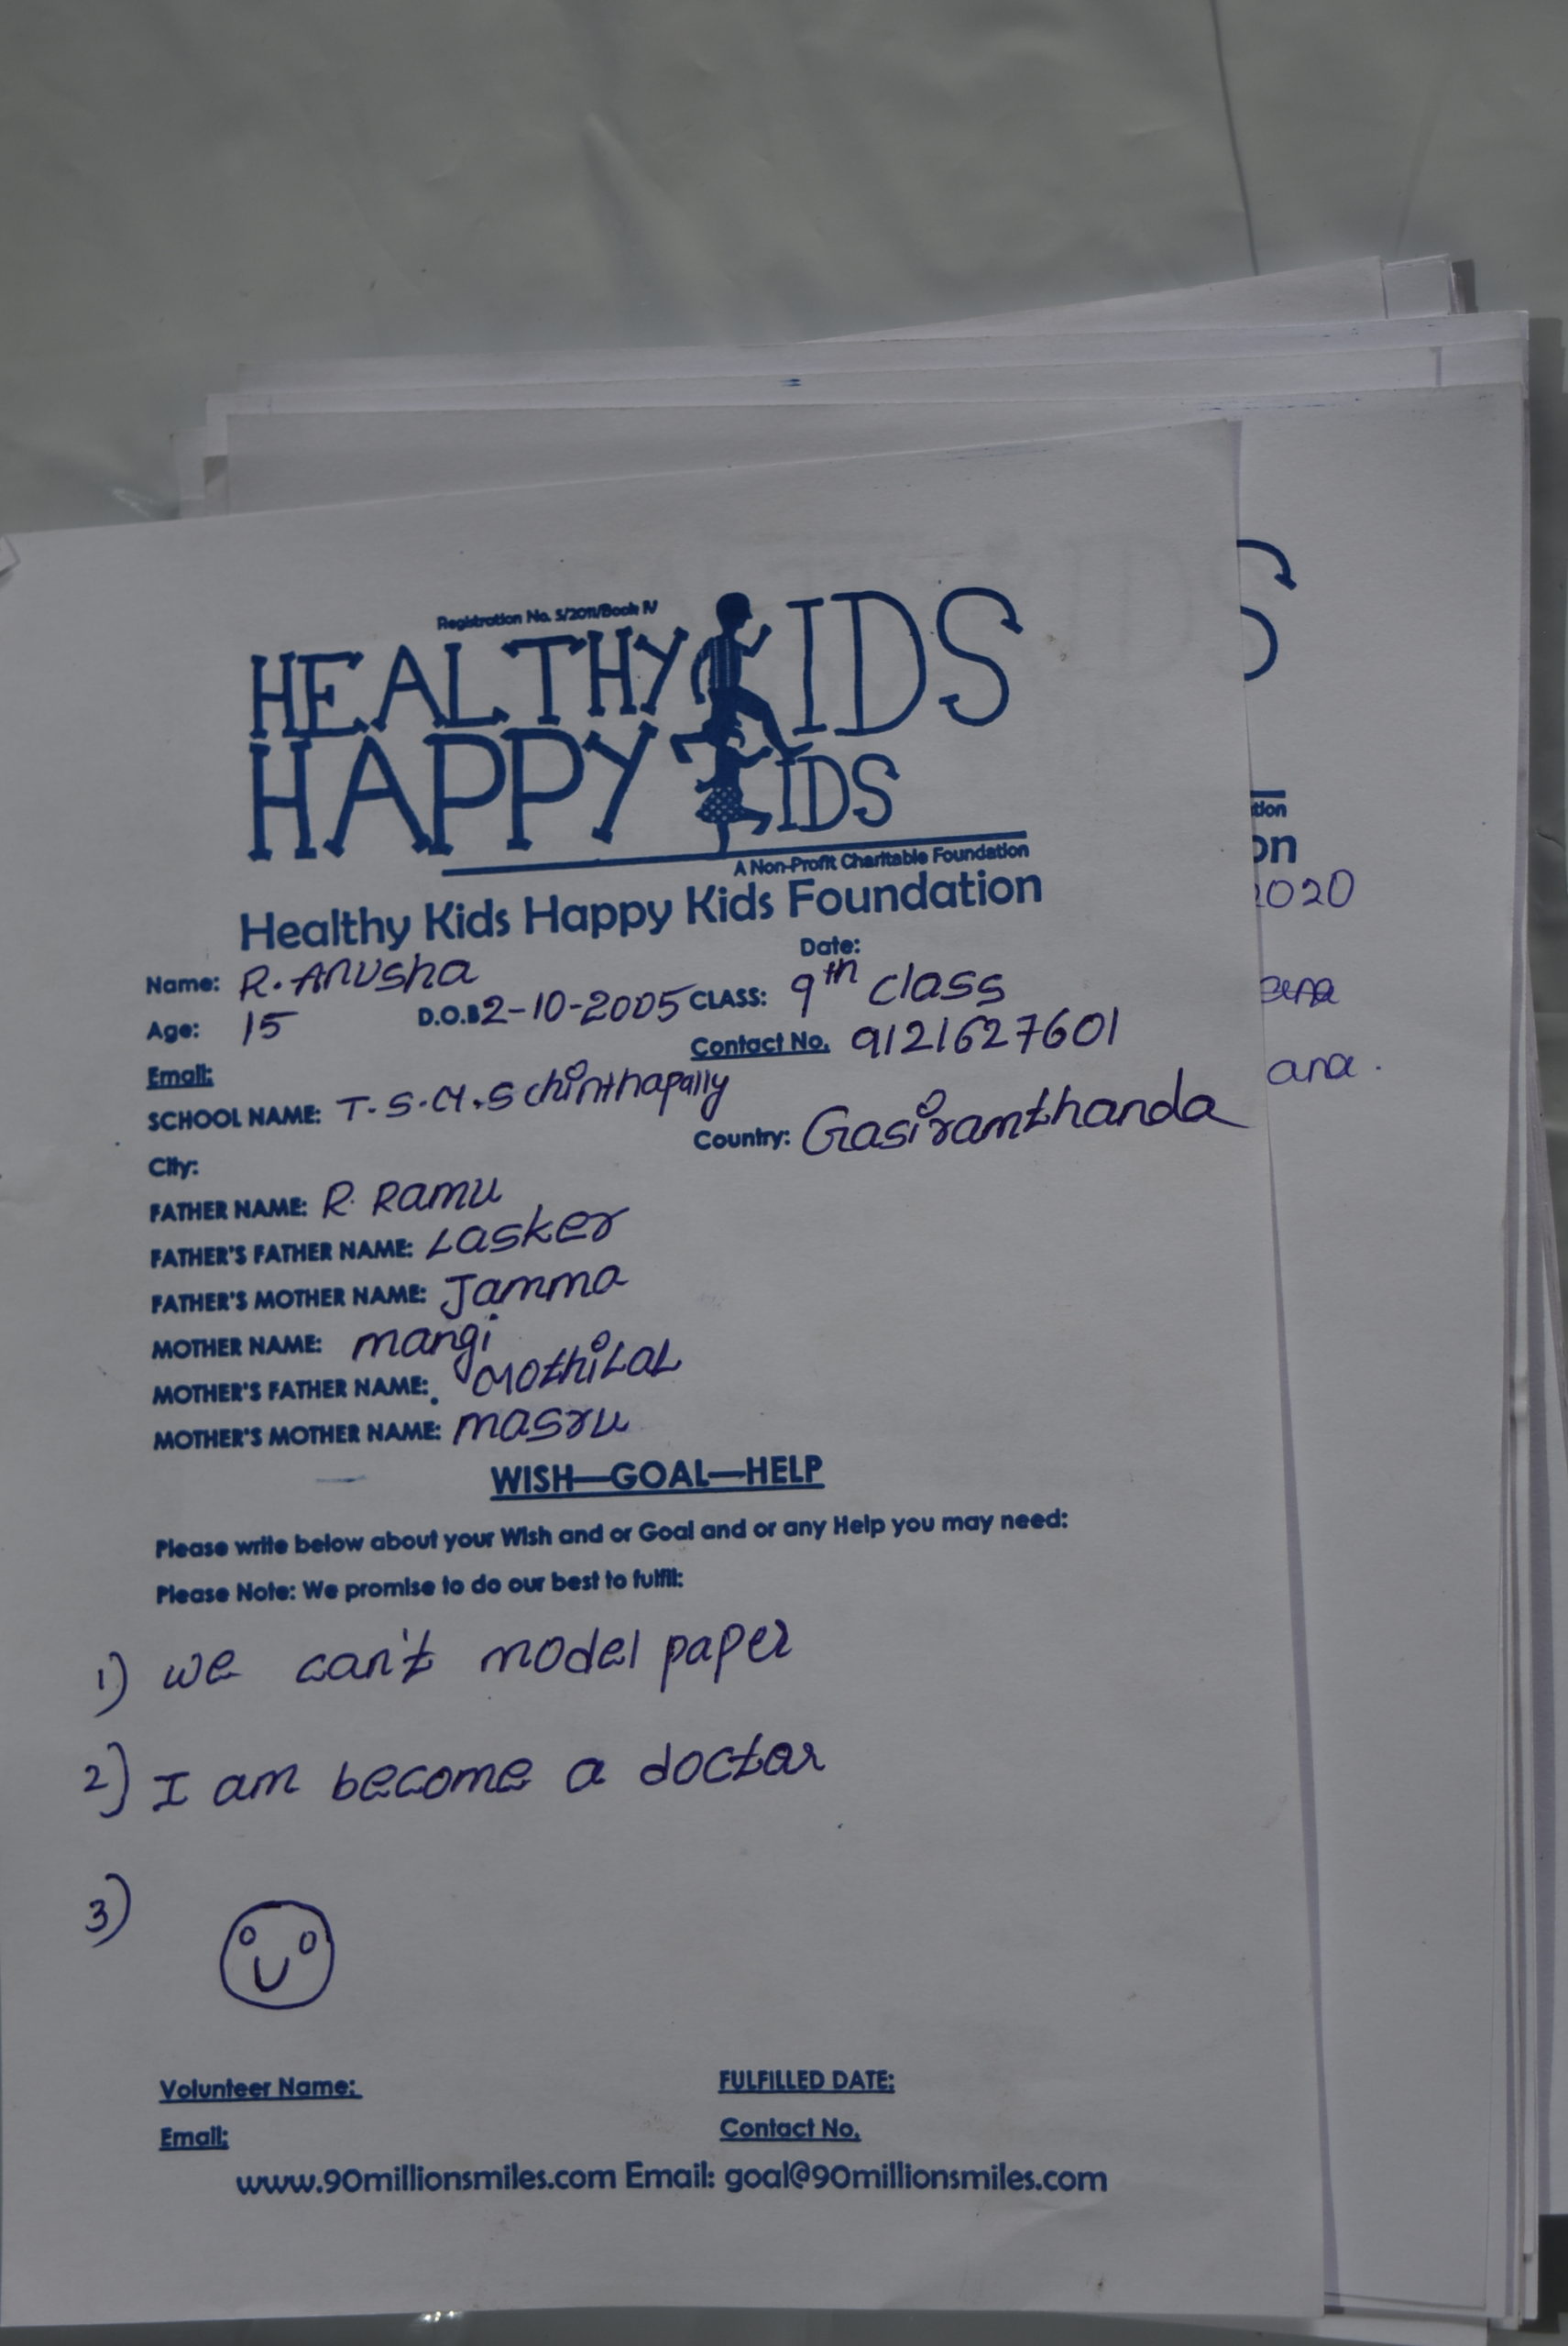 Registration No. 5/2011/Book IV
HEALTHY KIDS
HAPPY KIDS
A Non-Profit Charitable Foundation
Healthy Kids Happy Kids Foundation
Date:
Name: R. Anusha
Age: 15 D.O.B 2-10-2005 CLASS: 9th class
Email: Contact No. 9121627601
SCHOOL NAME: T.S.M.S chinthapally
City: Country: Gasiramthanda
FATHER NAME: R. Ramu
FATHER'S FATHER NAME: Lasker
FATHER'S MOTHER NAME: Jamma
MOTHER NAME: mangi
MOTHER'S FATHER NAME: MothiLaL
MOTHER'S MOTHER NAME: masru
WISH—GOAL—HELP
Please write below about your Wish and or Goal and or any Help you may need:
Please Note: We promise to do our best to fulfil:
1) we can't model paper
2) I am become a doctar
3)
Volunteer Name: FULFILLED DATE:
Email: Contact No.
www.90millionsmiles.com Email: goal@90millionsmiles.com
S
tion
on
2020
ana.